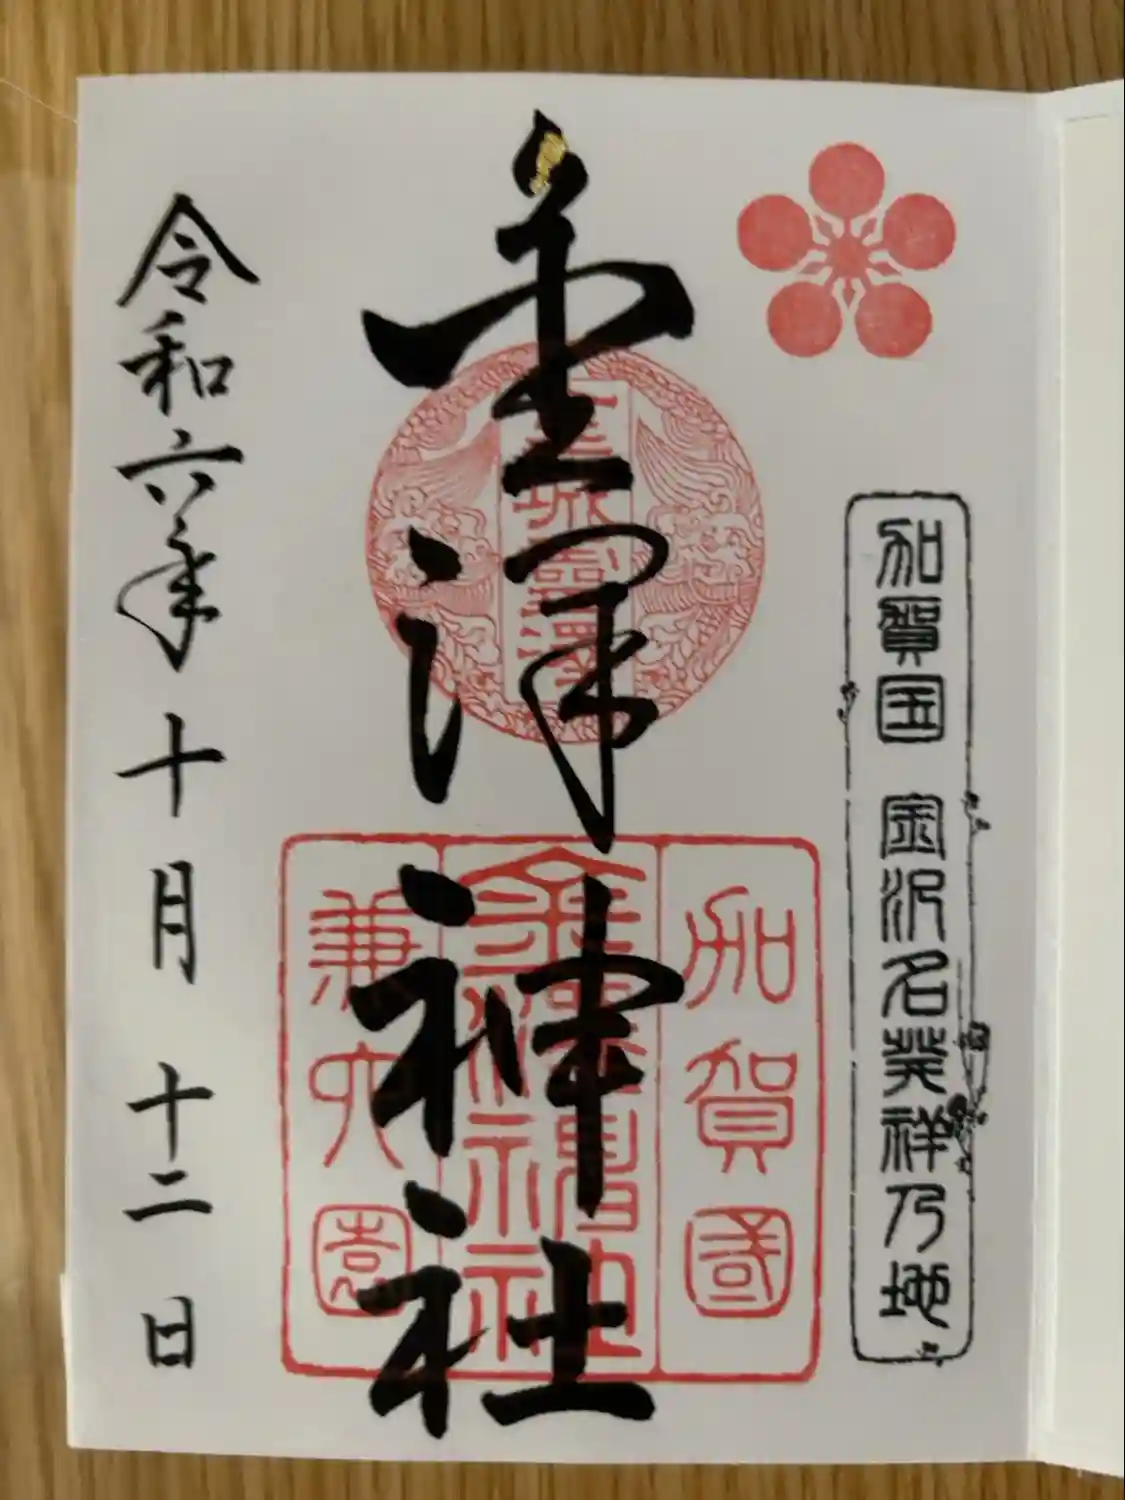 加賀国 金沢名発祥乃地
金澤神社
金城靈澤
加賀國
兼六園
令和六年十月十二日